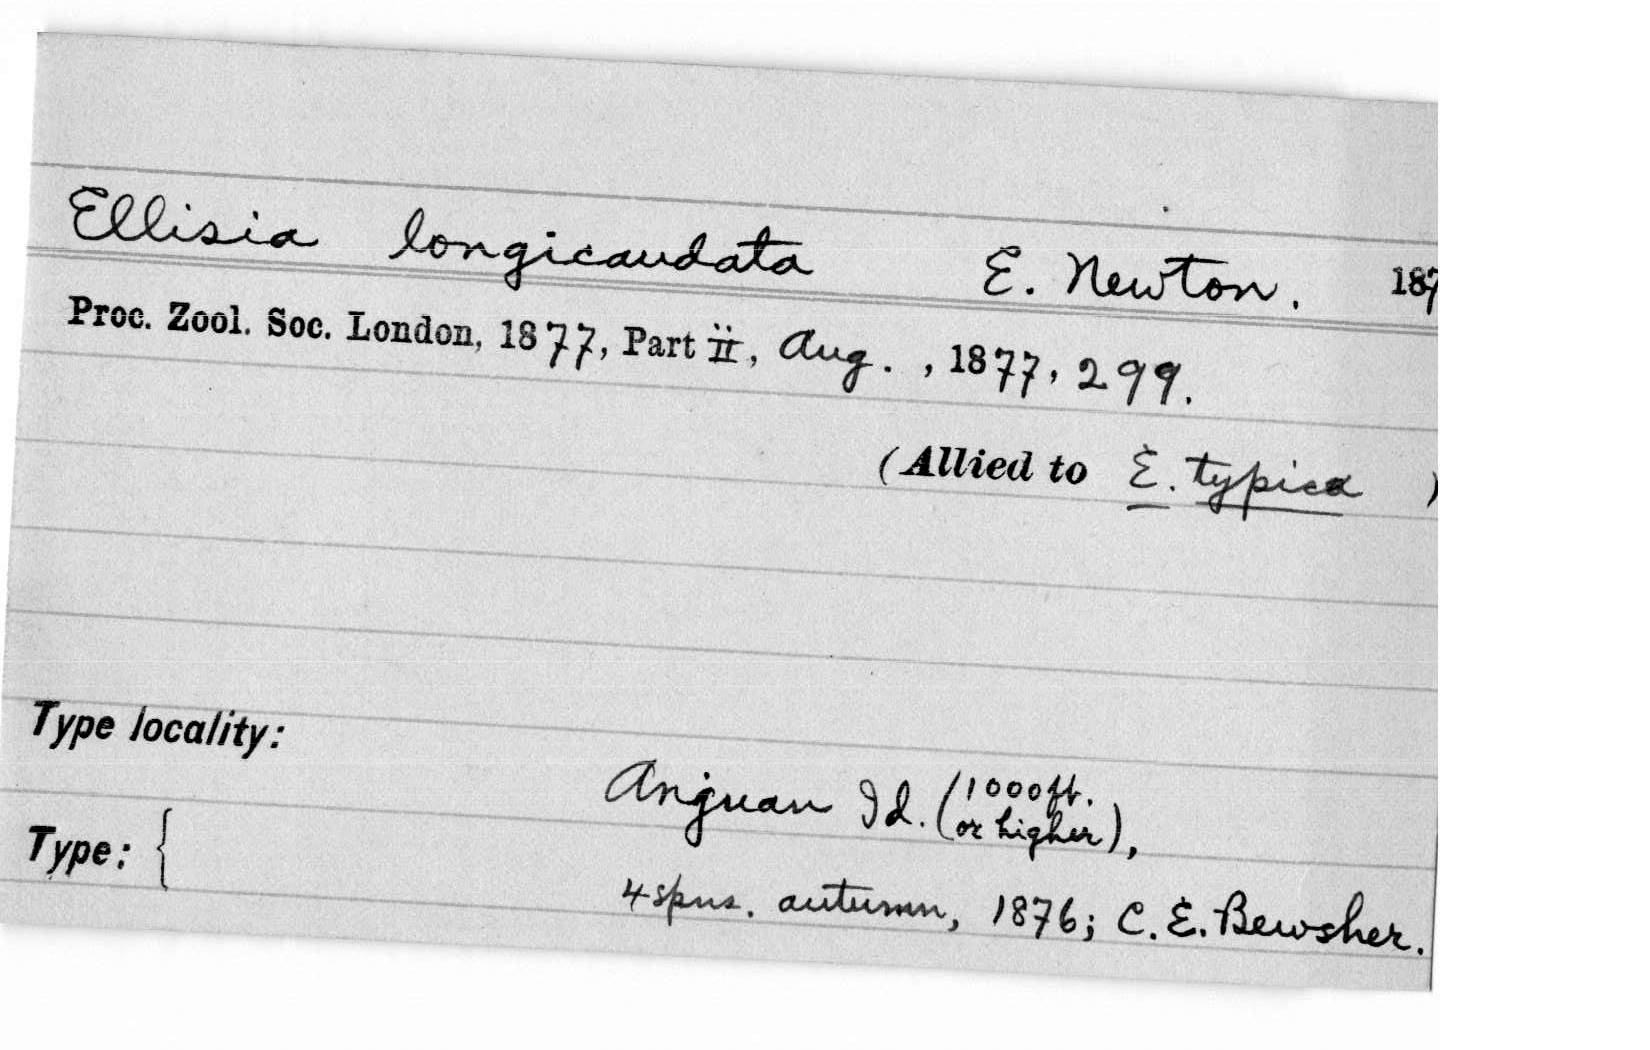 Ellisia longicaudata E. Newton. 187
Proc. Zool. Soc. London, 1877, Part ii, Aug. , 1877, 299.
(Allied to E. typica )
Type locality:
Anjuan Id. (1000ft.
or higher),
Type: {
4 spns. autumn, 1876; C. E. Bewsher.